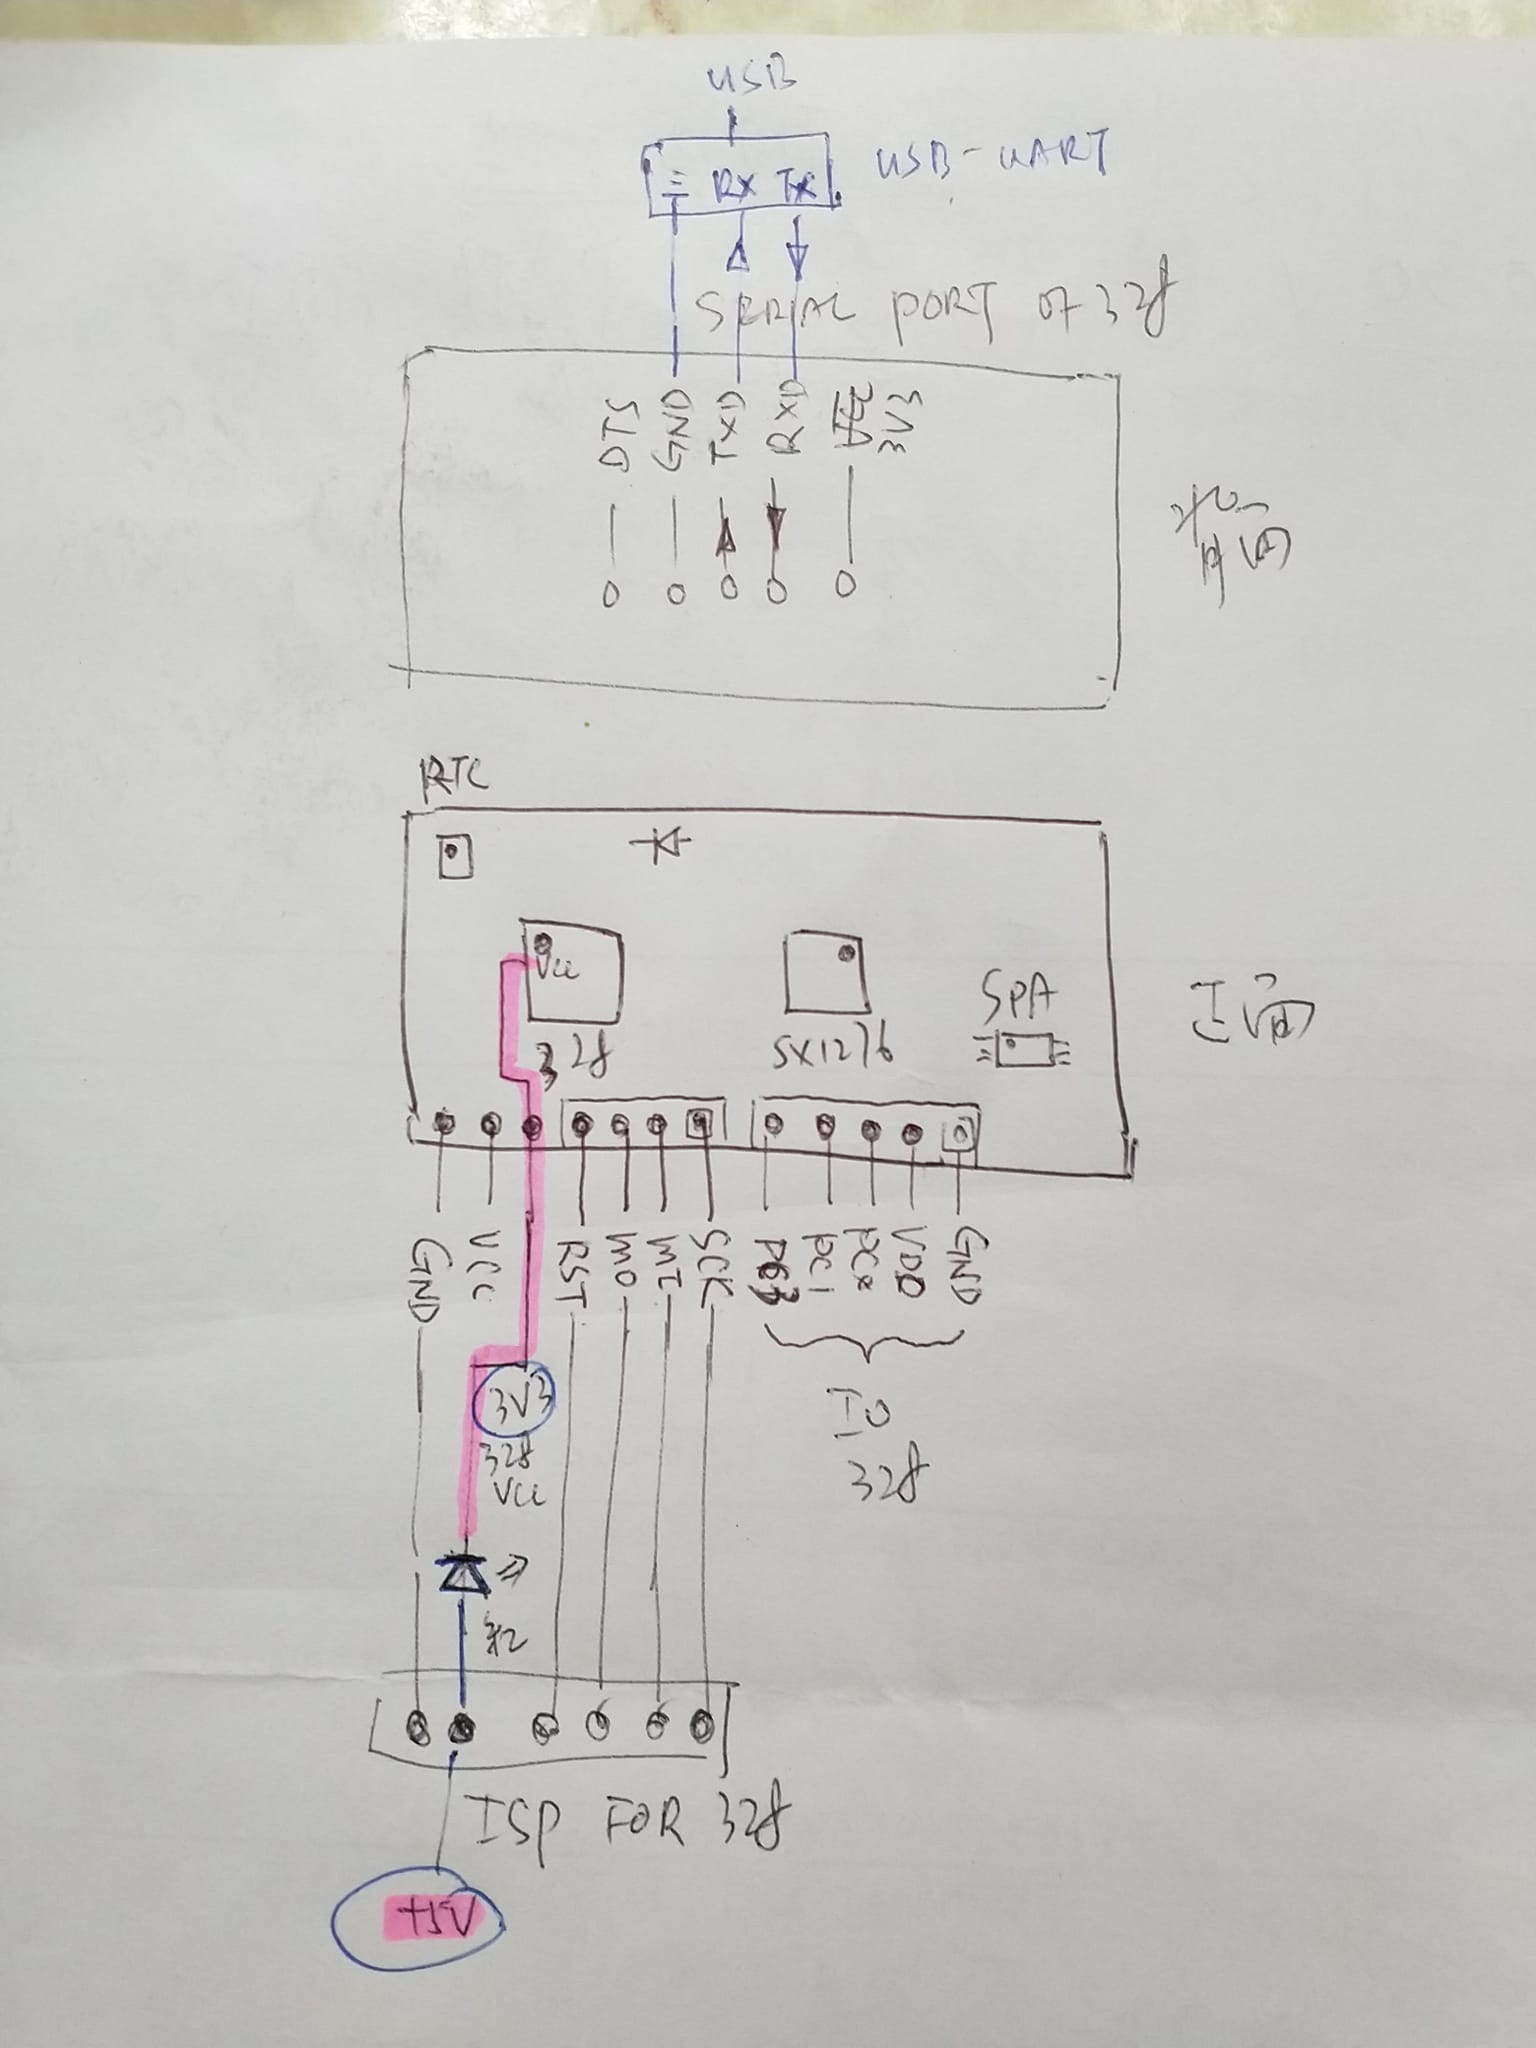 USB
USB-UART
RX TX
SERIAL PORT OF 328
DTS
GND
TXD
RXD
VCC
3V3
背面
RTC
Vcc
328
SX1276
SPA
正面
GND
VCC
RST
MO
MI
SCK
PC1
VDD
GND
3V3
328
Vcc
IO
328
红
ISP FOR 328
+5V